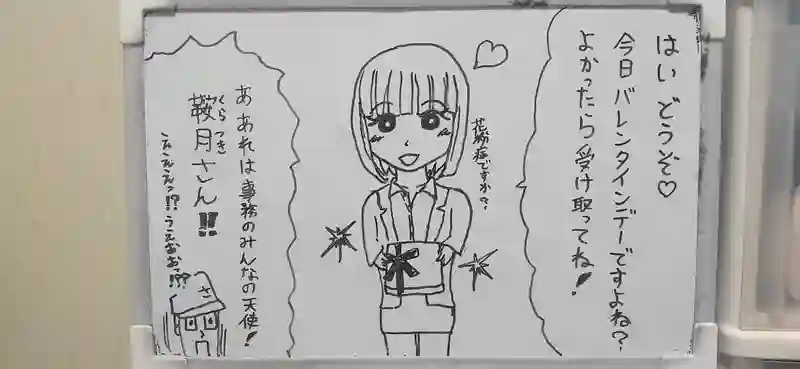 はい どうぞ♡
今日 バレンタインデーですよね?
よかったら 受け取ってね!
花粉症ですか?
あ あれは 事務のみんなの天使!
くら つき
鞍月さん!!
ええええっ!? うえおおっ!??
さ